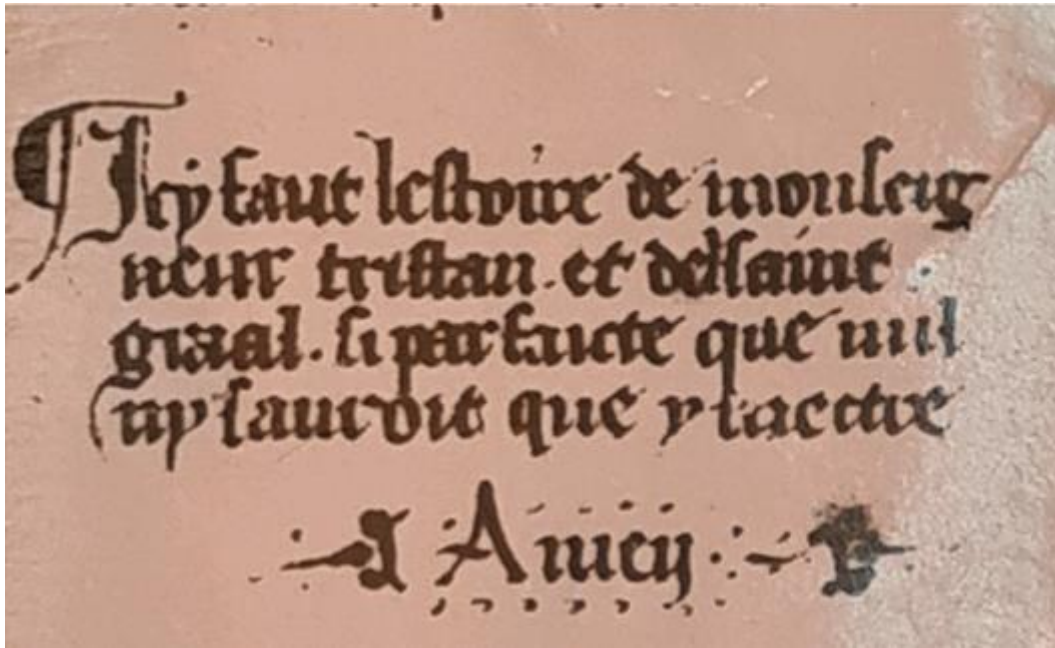 Icy faut lestoire de monseig
neur tristan . et del saint
graal . si parfaicte que nul
ny sauroit que y mectre
Amen